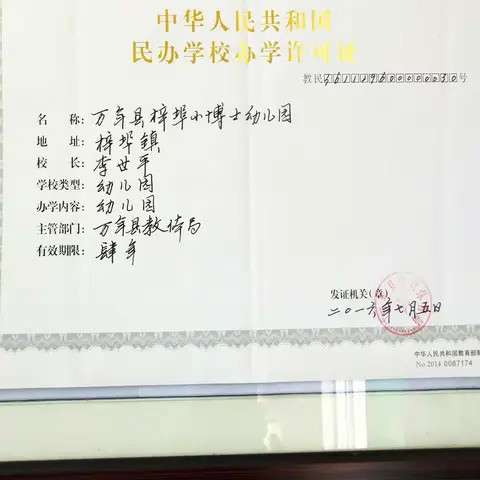 中华人民共和国
民办学校办学许可证
教民361112960000030号
名 称: 万年县梓埠小博士幼儿园
地 址: 梓埠镇
校 长: 李世平
学校类型: 幼儿园
办学内容: 幼儿园
主管部门: 万年县教体局
有效期限: 肆年
发证机关(章)
二〇一六年七月五日
中华人民共和国教育部制
No.2014 0087174